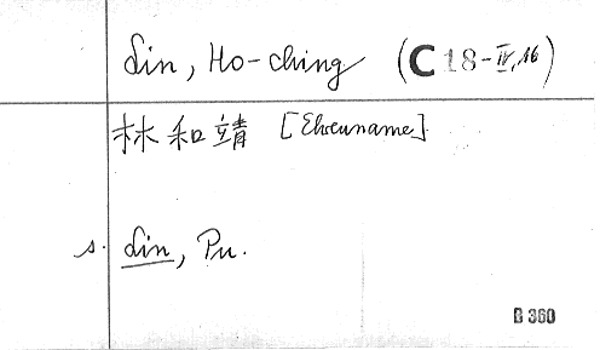 Lin, Ho-ching (C 18-IV, 16)
林和靖 [Ehrenname]
s. Lin, Pu.
B 360